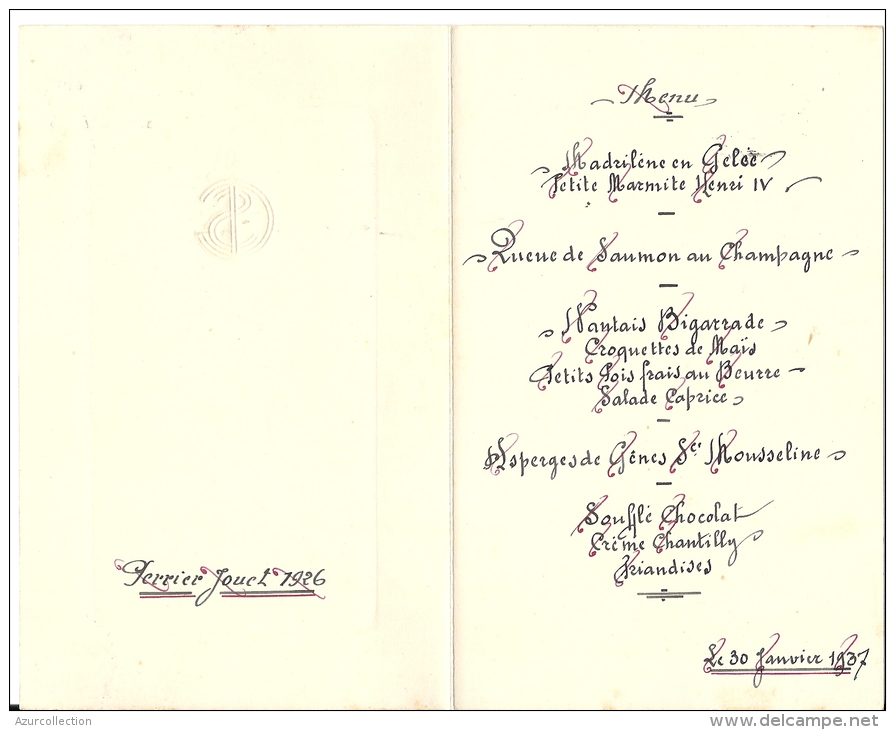 Perrier Jouet 1926
Menu
Madrilène en Gelée
Petite Marmite Henri IV
Queue de Saumon au Champagne
Nantais Bigarrade
Croquettes de Maïs
Petits Pois frais au Beurre
Salade Caprice
Asperges de Gênes Sce Mousseline
Soufflé Chocolat
Crème Chantilly
Friandises
Le 30 Janvier 1937
Azurcollection
www.delcampe.net